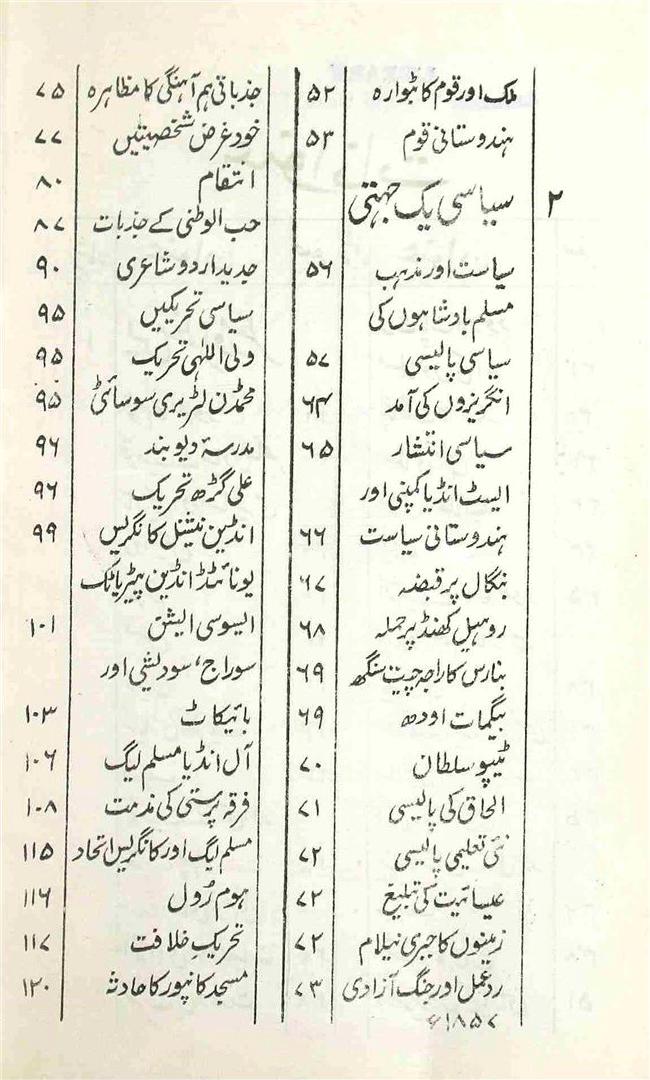 ملک اور قوم کا بٹوارہ ۵۲
ہندوستانی قوم ۵۳
۲ سیاسی یک جہتی
سیاست اور مذہب ۵۶
مسلم بادشاہوں کی
سیاسی پالیسی ۵۷
انگریزوں کی آمد ۶۴
سیاسی انتشار ۶۵
ایسٹ انڈیا کمپنی اور
ہندوستانی سیاست ۶۶
بنگال پر قبضہ ۶۷
روہیل کھنڈ پر حملہ ۶۸
بنارس کا راجہ چیت سنگھ ۶۹
بیگمات اودھ ۶۹
ٹیپو سلطان ۷۰
الحاق کی پالیسی ۷۱
نئی تعلیمی پالیسی ۷۲
عیسائیت کی تبلیغ ۷۲
زمینوں کا جبری نیلام ۷۲
ردعمل اور جنگ آزادی ۷۳
۱۸۵۷ء
جذباتی ہم آہنگی کا مظاہرہ ۷۵
خود غرض شخصیتیں ۷۷
انتقام ۸۰
حب الوطنی کے جذبات ۸۷
جدید اردو شاعری ۹۰
سیاسی تحریکیں ۹۵
ولی اللہٰی تحریک ۹۵
محمڈن لٹریری سوسائٹی ۹۵
مدرسۂ دیوبند ۹۶
علی گڑھ تحریک ۹۶
انڈین نیشنل کانگریس ۹۹
یونائٹڈ انڈین پیٹریاٹک
ایسوسی ایشن ۱۰۱
سوراج، سودیشی اور
بائیکاٹ ۱۰۳
آل انڈیا مسلم لیگ ۱۰۶
فرقہ پرستی کی مذمت ۱۰۸
مسلم لیگ اور کانگریس اتحاد ۱۱۵
ہوم رُول ۱۱۶
تحریکِ خلافت ۱۱۷
مسجد کانپور کا حادثہ ۱۲۰